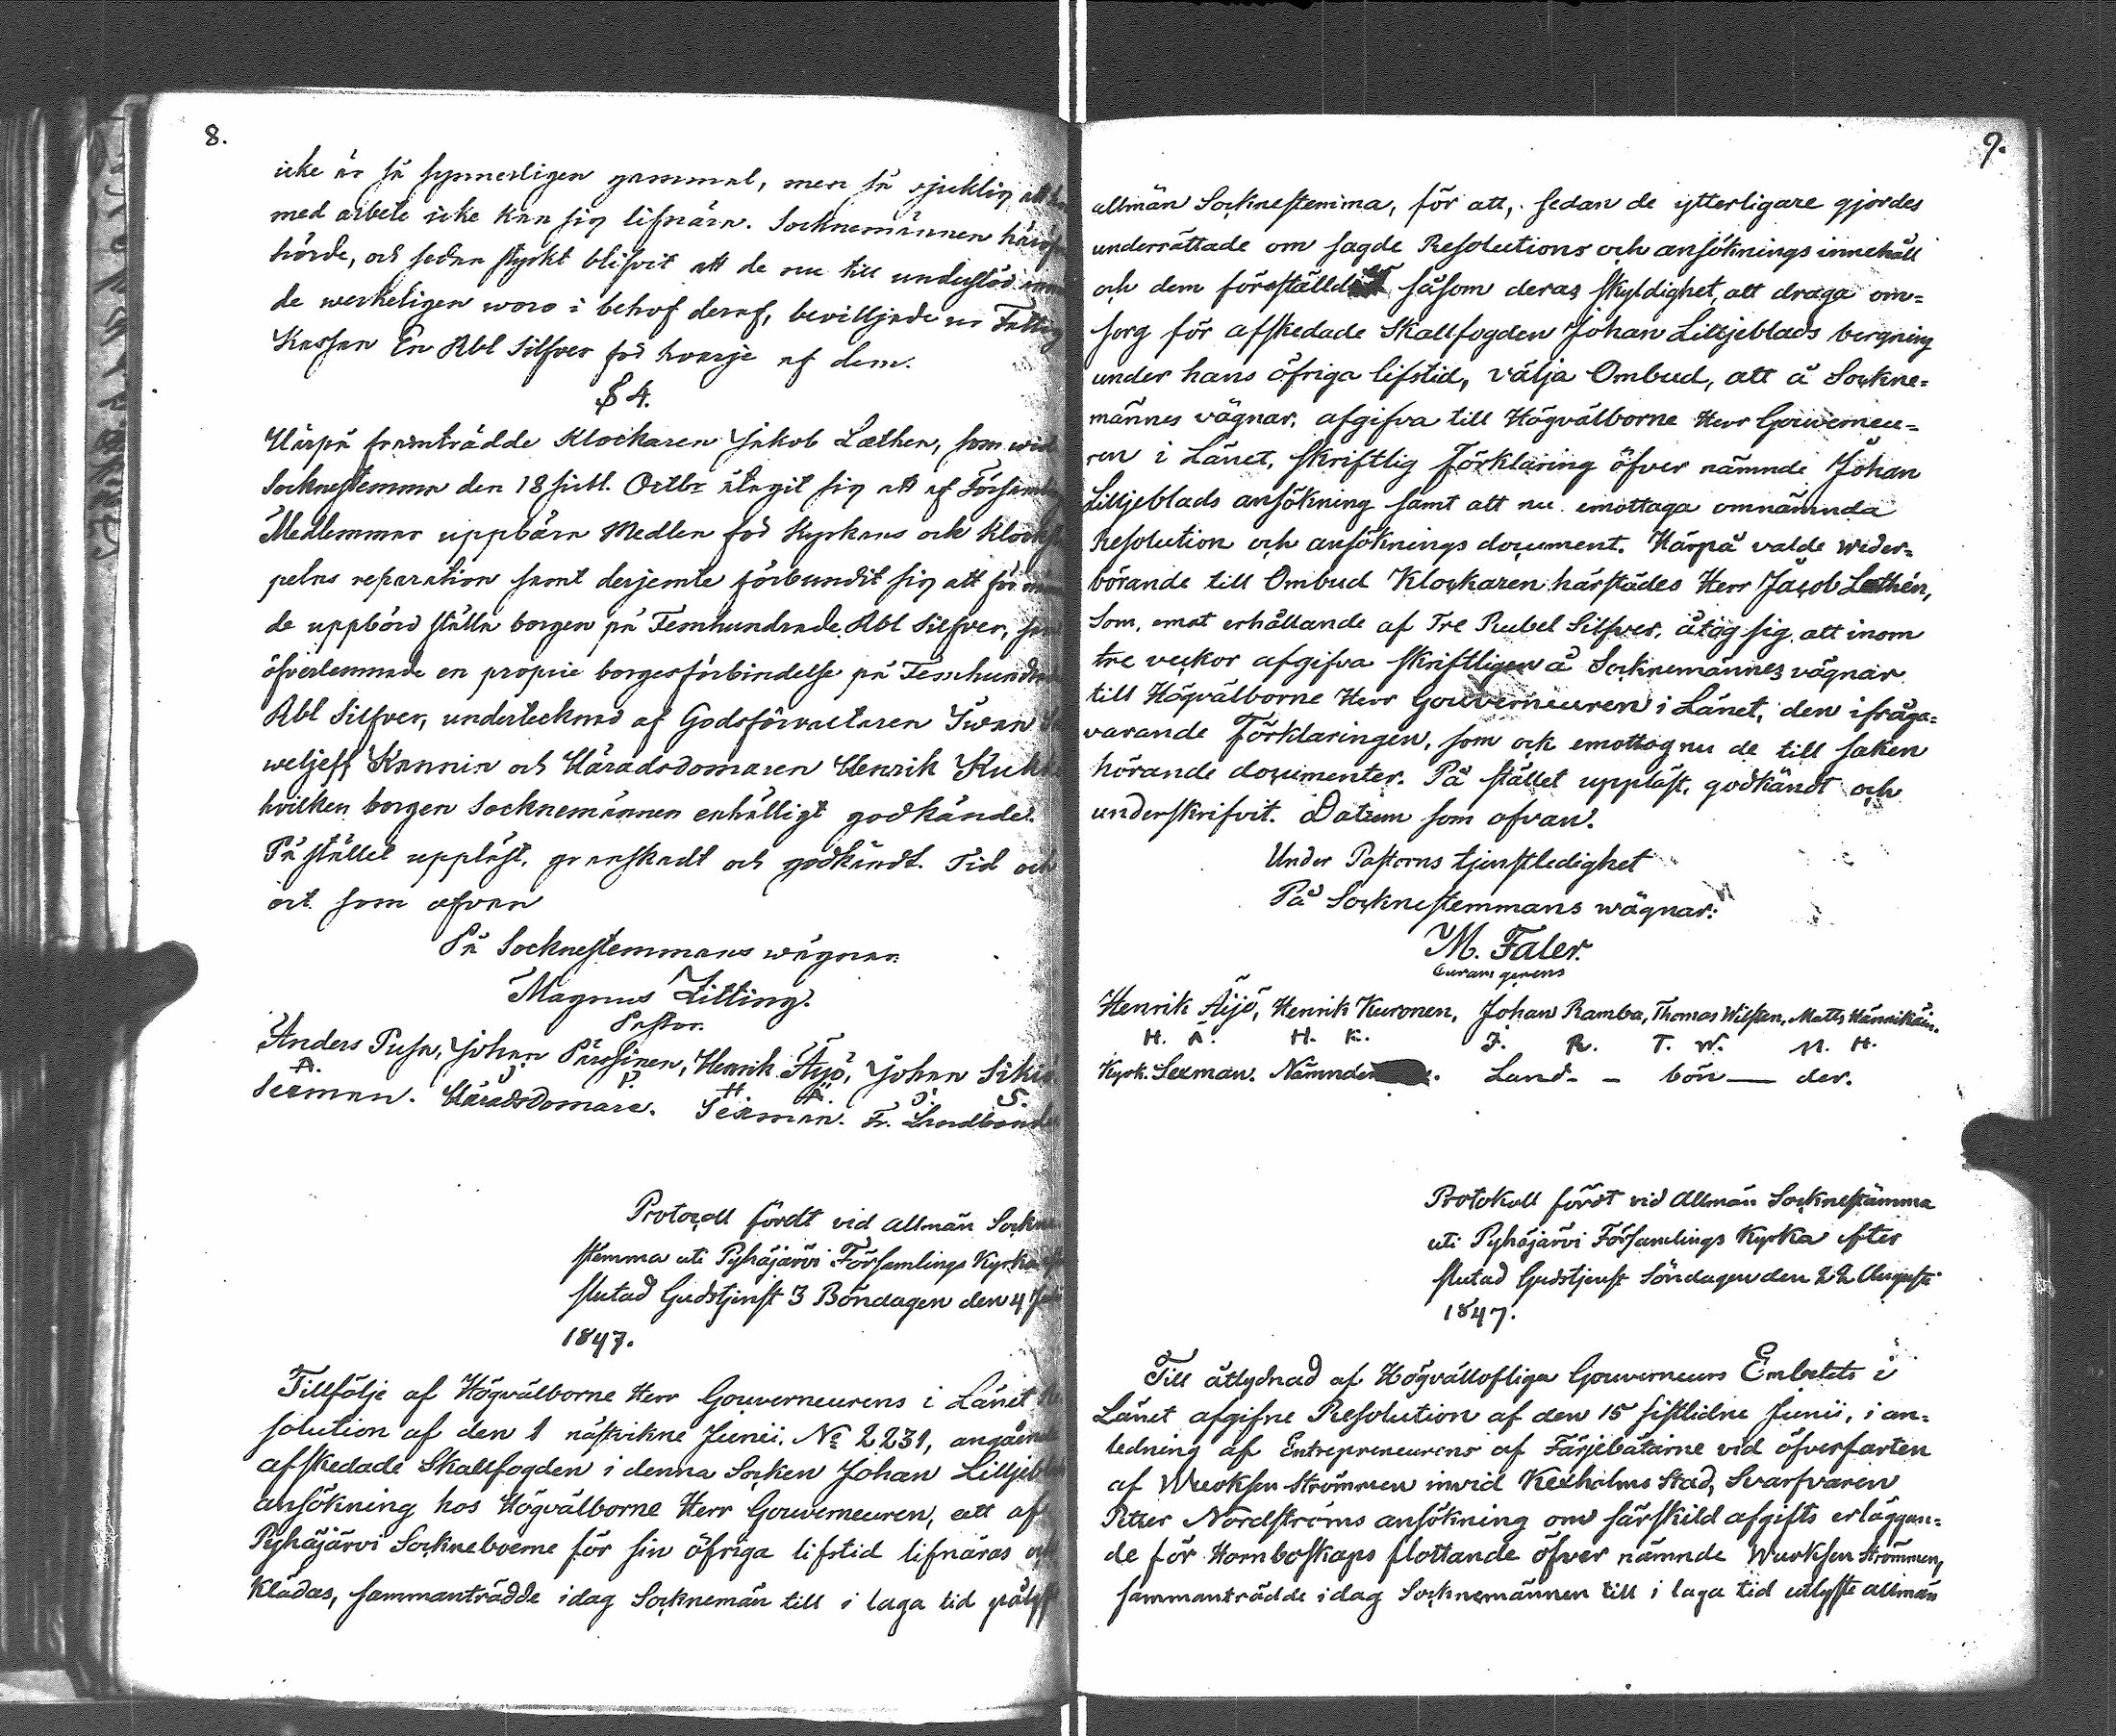 8.
icke är så synnerligen gammal, men så sjuklig att
med arbete icke kan sig lifnära. Socknemännen
hörde, och sedan styrkt blifvit att de nu till understöd
de werkeligen woro i behof deraf, bevilljade ur Fattig
Kassan En Rbl Silfver för hvarje af dem.
§ 4.
Härpå framträdde Klockaren Jakob Lethen, som wid
Socknestemma den 18 sistl. Octbr åtagit sig att af Församl
Medlemmar uppbära Medlen för Kyrkans och Klocksta
pelns reparation samt derjemte förbundit sig att för
de uppbörd ställa borgen på Femhundrade Rbl Silfver,
öfverlemnade en proprie borgesförbindelse på Femhundra
Rbl Silfver, undertecknad af Godsförvaltaren Iwan
weljeff Kannin och Häradsdomaren Henrik Kukk
hvilken borgen Socknemännen enhälligt godkände.
På stället uppläst, granskadt och godkändt. Tid och
ort som ofvan
På Socknestemmans wägnar
Magnus Zitting.
Pastor.
Anders Pusa, Johan Pärssinen, Henrik Äijö, Johan Siki
A. J. P. H. Ä. J. S.
Sexman. Häradsdomare. Sexman. Fr. Landbonde
Protocoll fördt vid allmän Sockne
stemma uti Pyhäjärvi Församlings Kyrka
slutad Gudstjenst 3 Böndagen den 4
1847.
Tillfölje af Högvälborne Herr Gouverneurens i Länet Re
solution af den 1 nästvikne Junii. No 2231, angående
afskedade Skallfogden i denna Socken Johan Lilljeb
ansökning hos Högvälborne Herr Gouverneuren, att af
Pyhäjärvi Sockneboerne för sin öfriga lifstid lifnäras och
Klädas, sammanträdde idag Socknemän till i laga tid pålyst
9.
allmän Socknestemma, för att, sedan de ytterligare gjordes
underrättade om sagde Resolutions och ansöknings innehåll
och dem föreställdt såsom deras skyldighet, att draga om=
sorg för afskedade Skallfogden Johan Lilljeblads bergning
under hans öfriga lifstid, välja Ombud, att å Sockne=
männes vägnar, afgifva till Högvälborne Herr Gouverneu=
ren i Länet, skriftlig Förklaring öfver nämnde Johan
Lilljeblads ansökning samt att nu emottaga omnämnda
Resolution och ansöknings document. Härpå valde weder=
börande till Ombud Klockaren härstädes Herr Jacob Lethén,
Som, emot erhållande af Tre Rubel Silfver, åtog sig att inom
tre veckor afgifva skriftligen å Socknemännes vägnar
till Högvälborne Herr Gouverneuren i Länet, den ifråga=
varande Förklaringen, som ock emottog nu de till saken
hörande documenter. På stället uppläst, godkändt och
underskrifvit. Datum som ofvan.
Under Pastorns tjenstledighet
På Socknestemmans wägnar:
M. Faler.
Curam gerens
Henrik Äijö, Henrik Kuronen, Johan Ramba, Thomas Wilsken, Matts Hännikäin.
H. Ä. H. K. J. R. T. W. M. H.
Kyrk. Sexman. Nämndem. Land- - bön — der.
Protokoll fördt vid Allmän Socknestämma
uti Pyhäjärvi Församlings Kyrka efter
slutad Gudstjenst Söndagen den 22 Augusti
1847.
Till åtlydnad af Högvällofliga Gouverneurs Embetets i
Länet afgifne Resolution af den 15 sistlidne Junii, i an=
ledning af Entrepreneurens af Färjebåtarne vid öfverfarten
af Wuoksen Strömmen invid Kexholms Stad, Svarfvaren
Petter Nordströms ansökning om särskild afgifts erläggan=
de för Hornboskaps flottande öfver nämnde Wuoksen Strömmen,
sammanträdde idag Socknemännen till i laga tid utlyste allmän